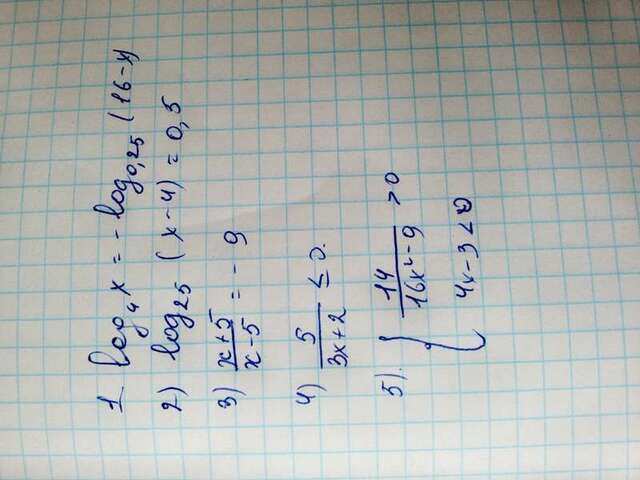 1 log₄ x = - log₀,₂₅ (16-x)
2) log₂₅ (x-4) = 0,5
3) (x+5)/(x-5) = -9
4) 5/(3x+2) ≤ 0.
5). { 14/(16x²-9) > 0
4x-3 < 0